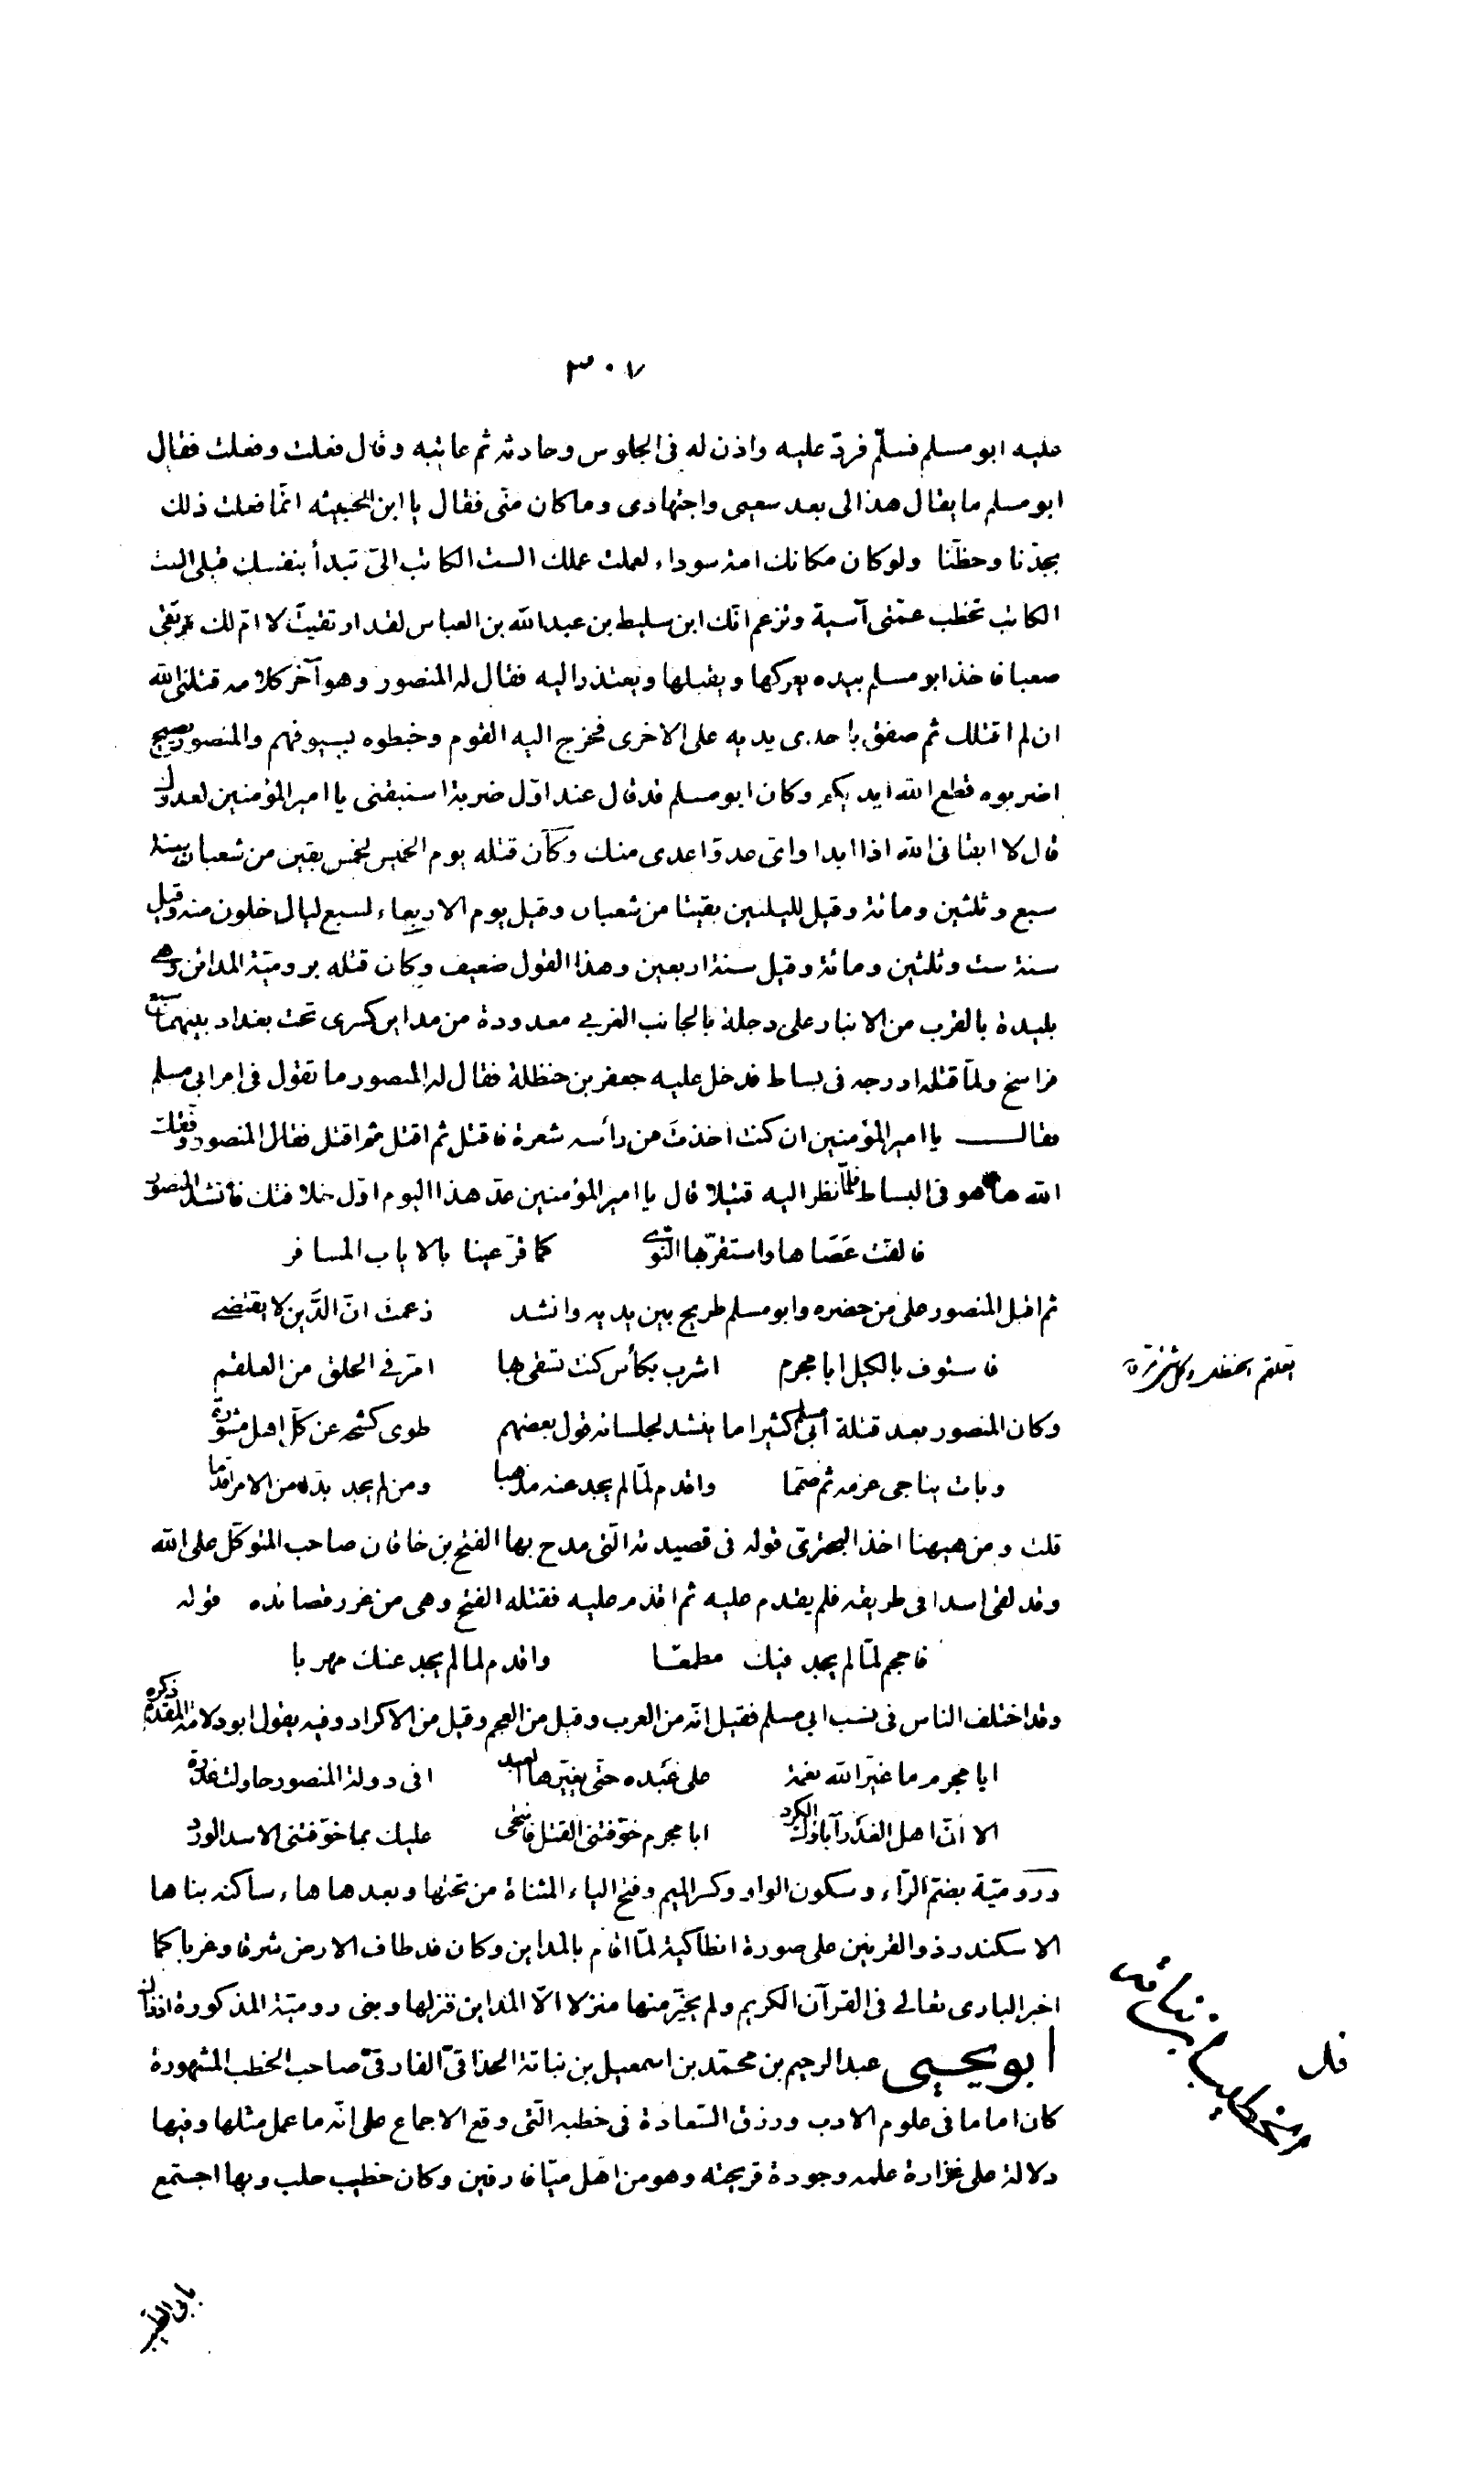 ٣٠٧
عليه ابو مسلم فسلّم فردّ عليه واذن له فى الجلوس وحادثه ثم عاتبه وقال فعلت وفعلت فقال
ابو مسلم ما يقال هذا لى بعد سعيى واجتهادى وما كان منّى فقال يا ابن الخبيثه انّما فعلت ذلك
بجدّنا وحظّنا ولو كان مكانك امة سوداء لعملت عملك الست الكاتب الىّ تبدأ بنفسك قبلى الست
الكاتب تخطب عمّتى آسية وتزعم انّك ابن سليط بن عبدالله بن العباس لقد ارتقيت لا امّ لك مرتقى
صعبا فاخذ ابو مسلم بيده يعركها ويقبلها ويعتذر اليه فقال له المنصور وهو آخر كلامه قتلنى الله
ان لم اقتلك ثم صفق باحدى يديه على الاخرى فخرج اليه القوم وخبطوه بسيوفهم والمنصور يصيح
اضربوه قطع الله ايديكم وكان ابو مسلم قد قال عند اوّل ضربة استبقنى يا امير المؤمنين لعدوّك
قال لا ابقانى الله اذا ابدا واىّ عدوّ اعدى منك وكان قتله يوم الخميس لخمس بقين من شعبان سنة
سبع وثلثين ومائة وقيل لليلتين بقيتا من شعبان وقيل يوم الاربعاء لسبع ليال خلون منه وقيل
سنة ست وثلثين ومائة وقيل سنة اربعين وهذا القول ضعيف وكان قتله برومتية المدائن وهى
بليدة بالقرب من الانبار على دجلة بالجانب الغربي معدودة من مداين كسرى تحت بغداد بينهما سبعة
فراسخ ولمّا قتله ادرجه فى بساط فدخل عليه جعفر بن حنظلة فقال له المنصور ما تقول فى امر ابى مسلم
فقال يا امير المؤمنين ان كنت اخذت من رأسه شعرة فاقتل ثم اقتل ثم اقتل فقال المنصور وفقك
الله ها هو فى البساط فلمّا نظر اليه قتيلا قال يا امير المؤمنين عدّ هذا اليوم اوّل خلافتك فأنشد المنصور
فالقت عَصَاها واستقرّ بها النّوى كما قرّ عينا بالاياب المسافر
ثم اقبل المنصور على من حضره وابو مسلم طريح بين يديه وانشد زعمت انّ الدَّين لا يقتضى
فاستوف بالكيل ابا مجرم اشرب بكأس كنت تسقى بها امرّ فى الحلق من العلقم
العلقم الحنظل وكل شئ مرّ
وكان المنصور بعد قتلة ابى مسلم كثيرا ما ينشد لجلسائه قول بعضهم طوى كشحه عن كلّ اهل مشورة
وبات يناجى عزمه ثم صمّما واقدم لمّا لم يجد عنه مذهبا ومن لم يجد بدّا من الامر اقدما
قلت ومن هيهنا اخذ البحترىّ قوله فى قصيدته الّتى مدح بها الفتح بن خاقان صاحب المتوكّل على الله
وقد لقى اسدا فى طريقه فلم يقدم عليه ثم اقدم عليه فقتله الفتح وهى من غرر قصائده قوله
فاحجم لمّا لم يجد فيك مطمعًا واقدم لما لم يجد عنك مهربا
وقد اختلف الناس فى نسب ابى مسلم فقيل انّه من العرب وقيل من العجم وقيل من الاكراد وفيه يقول ابو دلامة المقدم ذكره
ابا مجرم ما غيّر الله نعمة على عَبده حتّى يغيّرها العبد افى دولة المنصور حاولت غدرة
الا انّ اهل الغَدْر آباؤك الكرد ابا مجرم خوّفتنى القتل فانتحى عليك بما خوّفتنى الاسد الورد
ورومتية بضم الرّاء وسكون الواو وكسر الميم وفتح الياء المثناة من تحتها وبعدها هاء ساكنه بناها
الاسكندر ذو القرنين على صورة انطاكية لمّا اقام بالمداين وكان قد طاف الارض شرقا وغربا كما
اخبر البارى تعالى فى القرآن الكريم ولم يختر منها منزلا الّا المداين فنزلها وبنى رومتية المذكورة اذذاك
ابو يحيى عبد الرحيم بن محمّد بن اسمعيل بن نباتة الحذاقىّ الفارقىّ صاحب الخطب المشهورة
كان اماما فى علوم الادب ورزق السّعادة فى خطبه الّتى وقع الاجماع على انّه ما عمل مثلها وفيها
دلالة على غزارة علمه وجودة قريحته وهو من اهل ميّافارقين وكان خطيب حلب وبها اجتمع
بابى الطيب